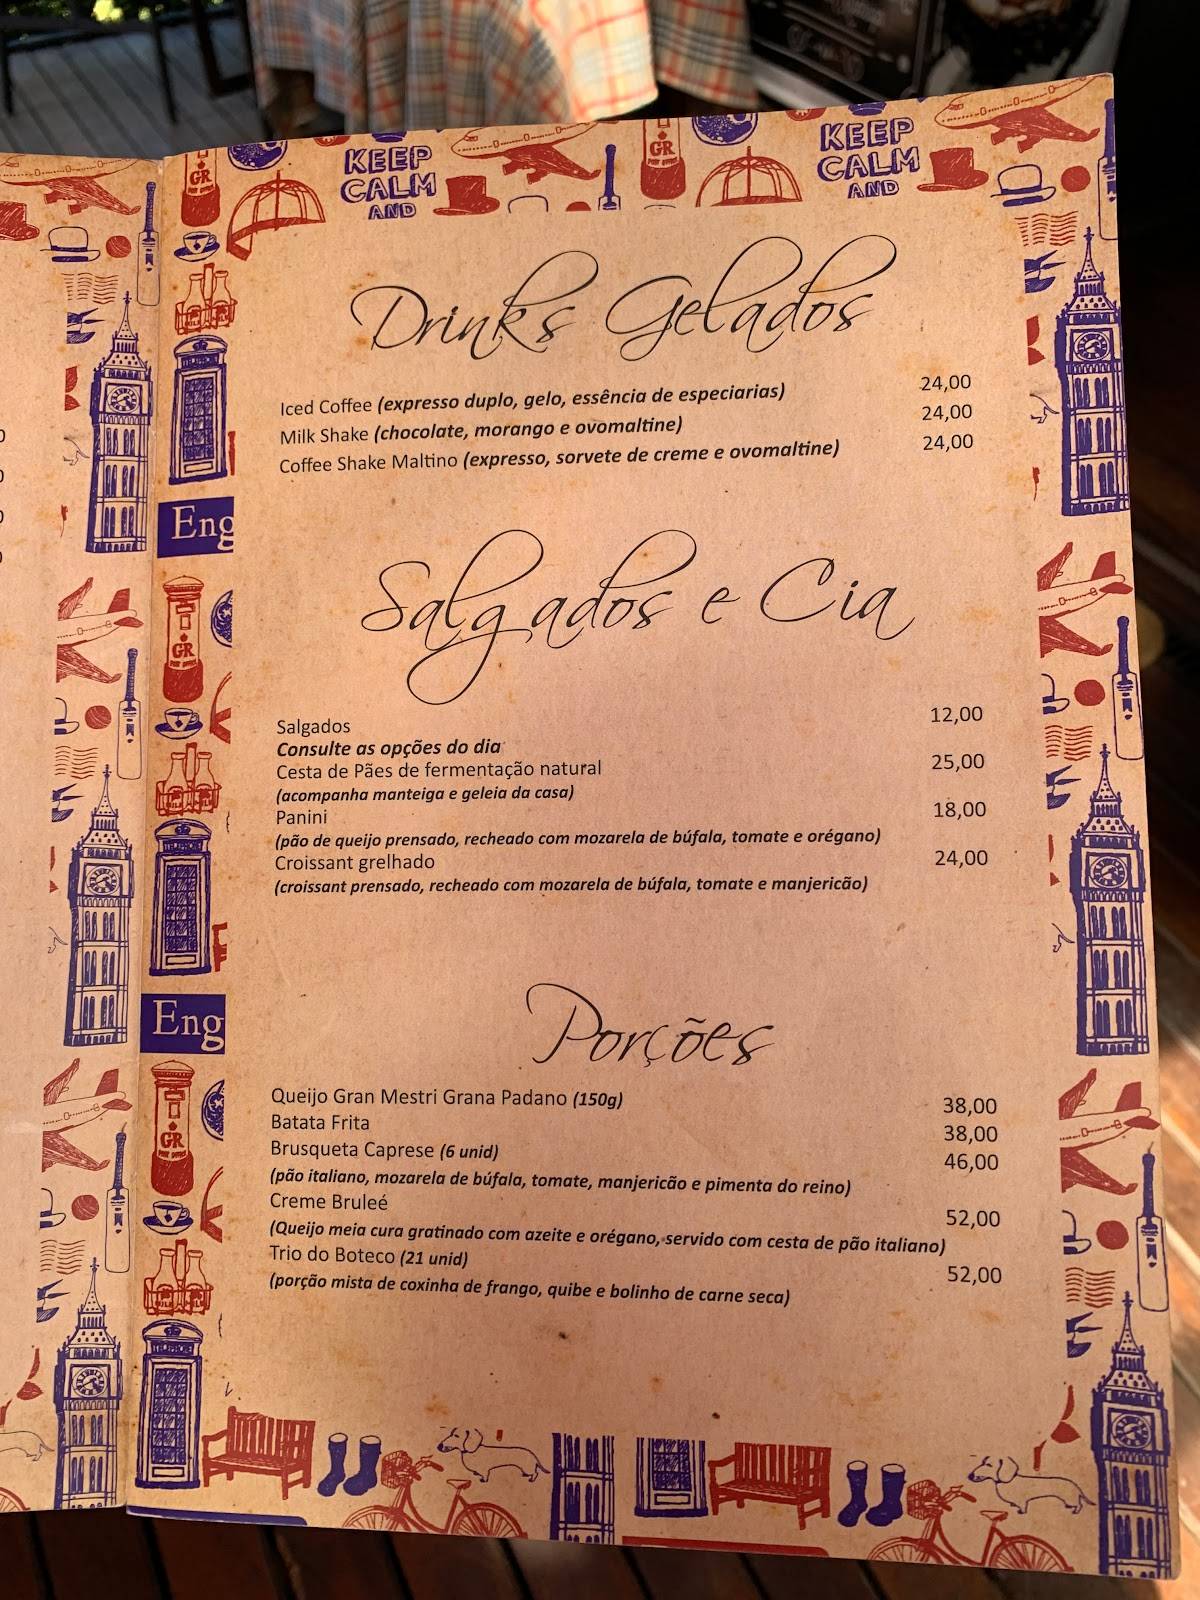 KEEP CALM AND
KEEP CALM AND
GR
GR
Drinks Gelados
Iced Coffee (expresso duplo, gelo, essência de especiarias) 24,00
Milk Shake (chocolate, morango e ovomaltine) 24,00
Coffee Shake Maltino (expresso, sorvete de creme e ovomaltine) 24,00
Eng
Salgados e Cia
GR
Salgados 12,00
Consulte as opções do dia
Cesta de Pães de fermentação natural 25,00
(acompanha manteiga e geleia da casa)
Panini 18,00
(pão de queijo prensado, recheado com mozarela de búfala, tomate e orégano)
Croissant grelhado 24,00
(croissant prensado, recheado com mozarela de búfala, tomate e manjericão)
Eng
Porções
GR
Queijo Gran Mestri Grana Padano (150g) 38,00
Batata Frita 38,00
Brusqueta Caprese (6 unid) 46,00
(pão italiano, mozarela de búfala, tomate, manjericão e pimenta do reino)
Creme Bruleé 52,00
(Queijo meia cura gratinado com azeite e orégano, servido com cesta de pão italiano)
Trio do Boteco (21 unid) 52,00
(porção mista de coxinha de frango, quibe e bolinho de carne seca)
TELEPHONE